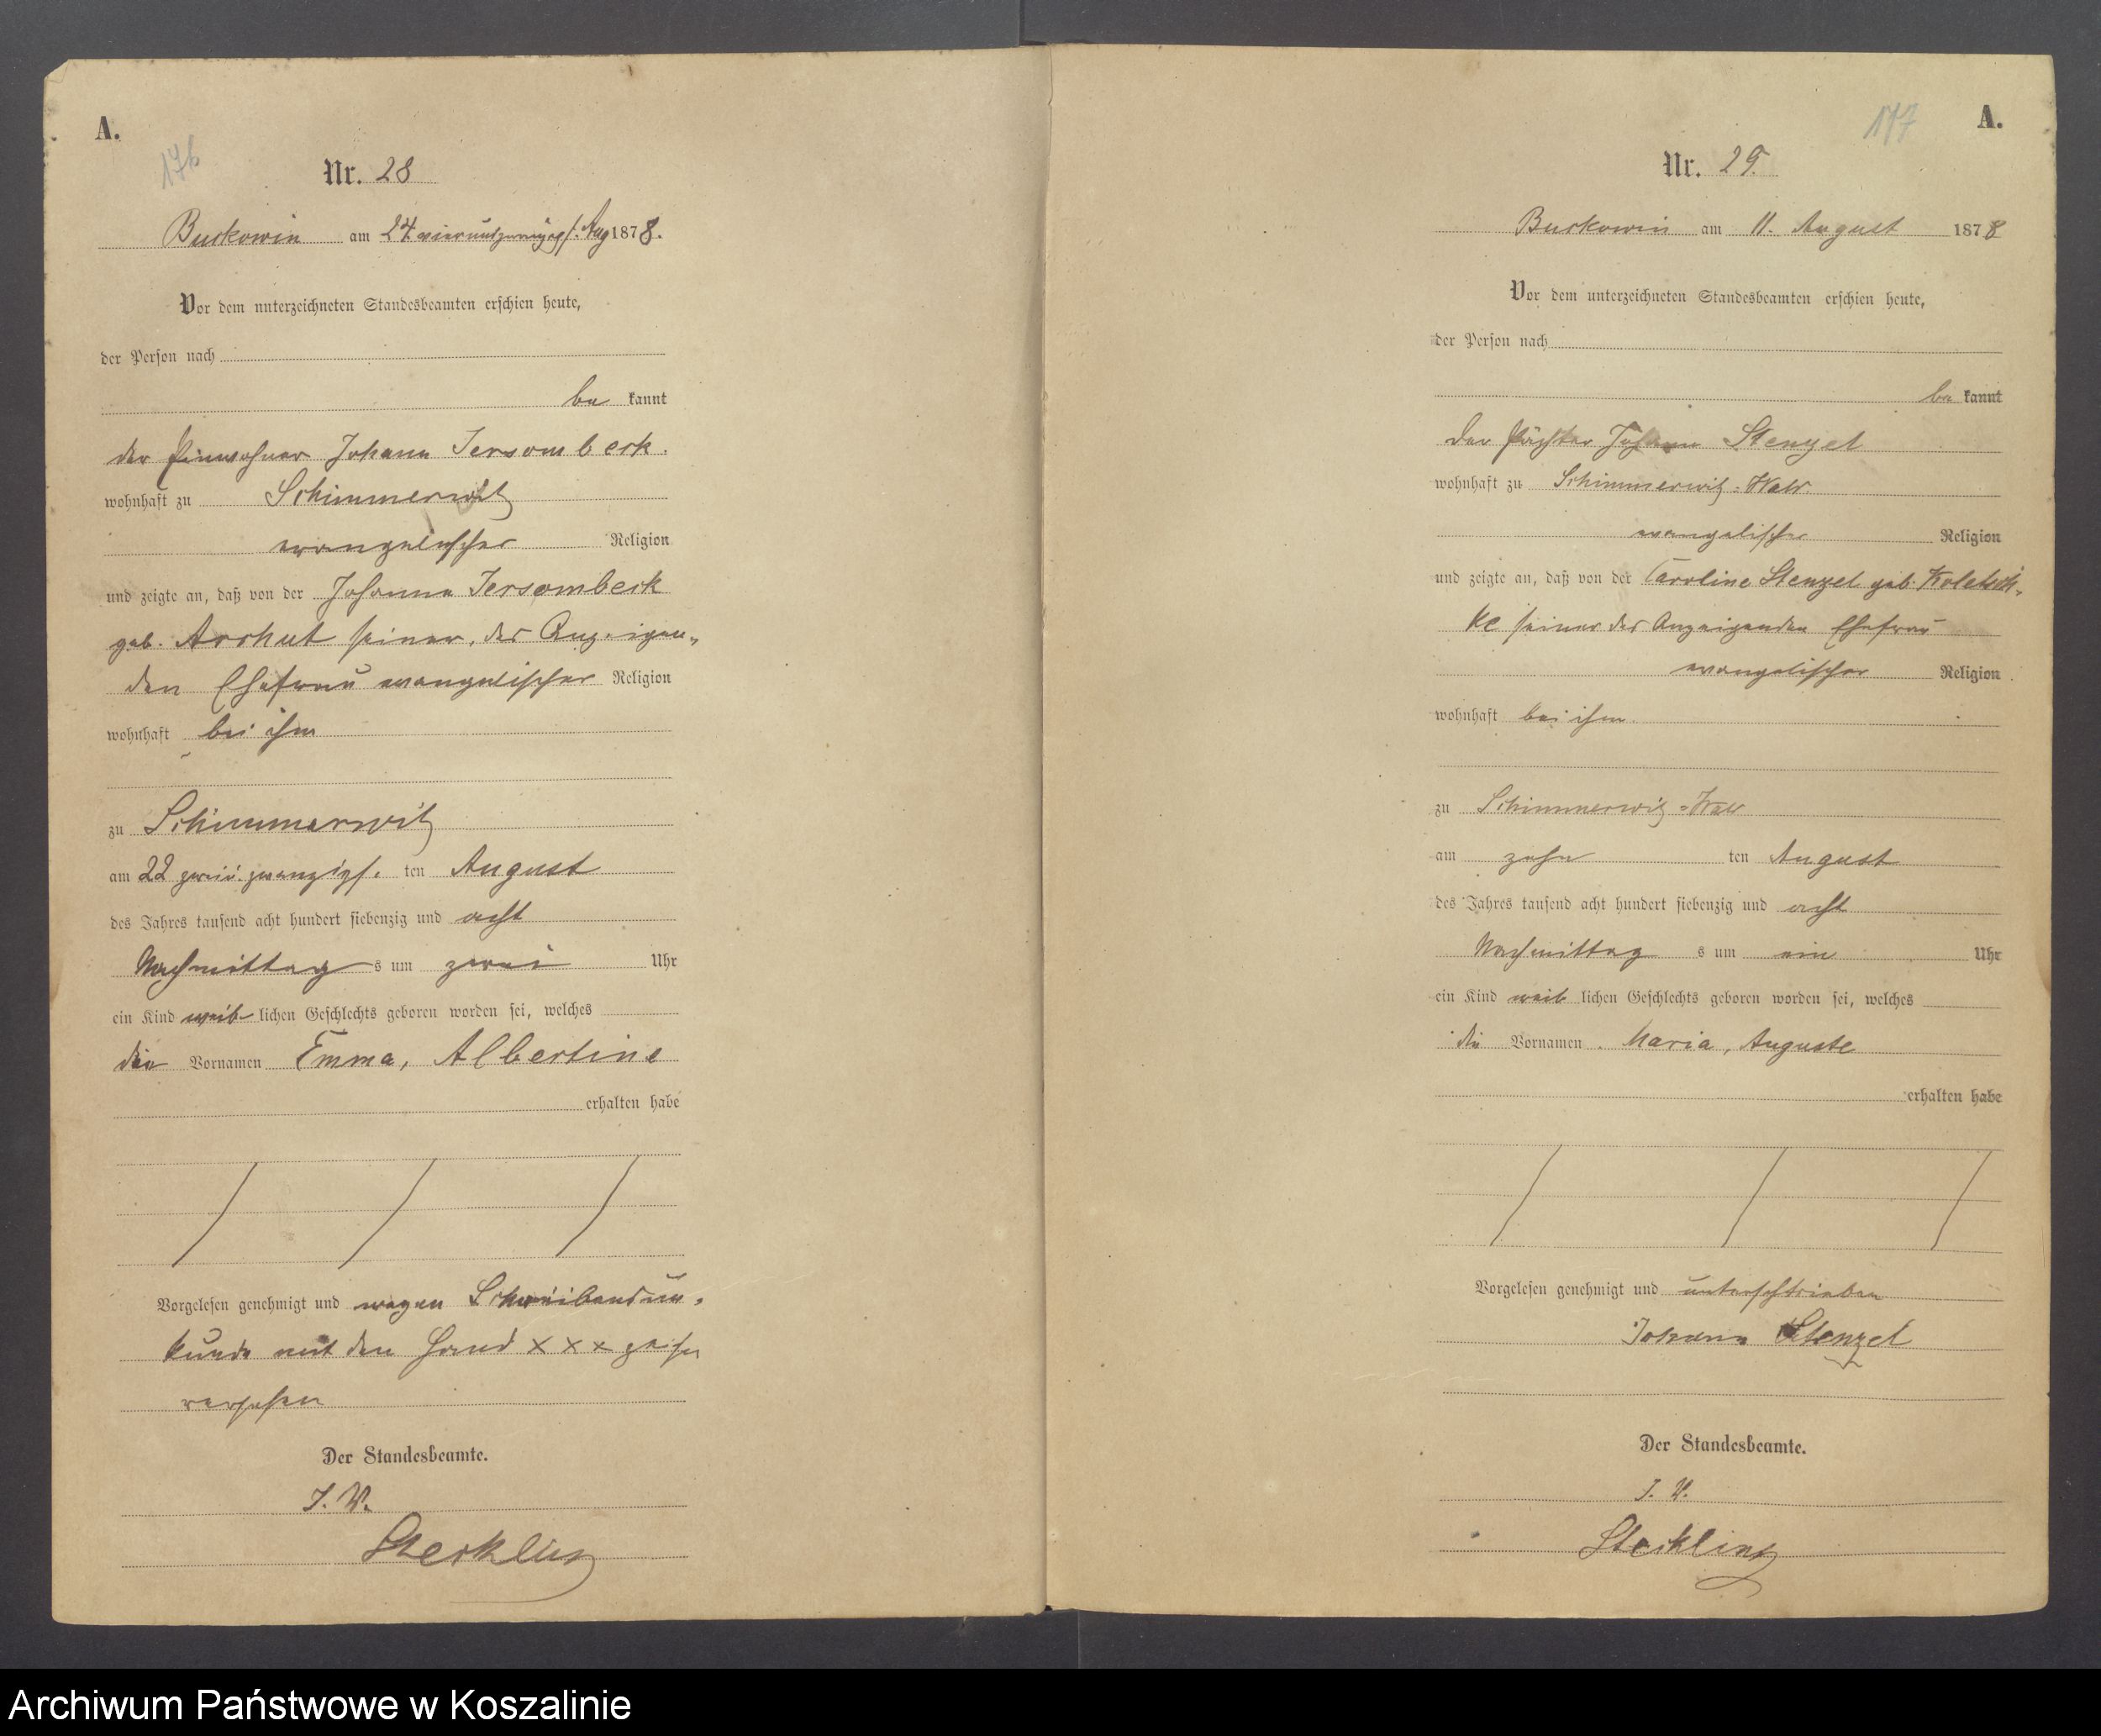 A.
176
Nr. 28
Buckowin am 24. vierundzwanzigst. Aug 1878.
Vor dem unterzeichneten Standesbeamten erschien heute,
der Person nach
be kannt
der Einwohner Johann Jersombeck.
wohnhaft zu Schimmerwitz
evangelischer Religion
und zeigte an, daß von der Johanna Jersombeck
geb. Arshut seiner, des Anzeigen-
den Ehefrau evangelischer Religion
wohnhaft bei ihm
zu Schimmerwitz
am 22 zweiu.zwanzigst. ten August
des Jahres tausend acht hundert siebenzig und acht
Nachmittag s um zwei Uhr
ein Kind weib lichen Geschlechts geboren worden sei, welches
die Vornamen Emma, Albertine
erhalten habe
Vorgelesen genehmigt und wegen Schreibensun-
kunde mit den Hand x x x zeichen
versehen
Der Standesbeamte.
I. V.
Steckling
117 A.
Nr. 29.
Buckowin am 11. August 1878
Vor dem unterzeichneten Standesbeamten erschien heute,
der Person nach
be kannt
der Pächter Johann Stenzel
wohnhaft zu Schimmerwitz-
evangelischer Religion
und zeigte an, daß von der Caroline Stenzel geb. Koletsch-
ke seiner des Anzeigenden Ehefrau
evangelischer Religion
wohnhaft bei ihm.
zu Schimmerwitz-
am zehn ten August
des Jahres tausend acht hundert siebenzig und acht
Nachmittag s um ein Uhr
ein Kind weib lichen Geschlechts geboren worden sei, welches
die Vornamen Maria, Auguste
erhalten habe
Vorgelesen genehmigt und unterschrieben
Johann Stenzel
Der Standesbeamte.
I. V.
Steckling
Archiwum Państwowe w Koszalinie